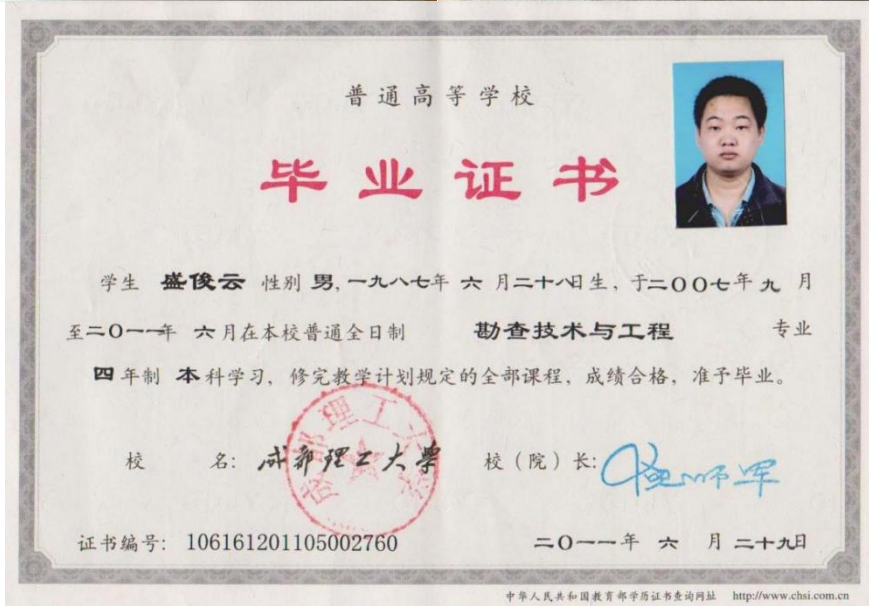 普通高等学校
毕业证书
学生 盛俊云 性别 男, 一九八七年 六 月二十八日生, 于二〇〇七年 九 月
至二〇一一年 六 月在本校普通全日制 勘查技术与工程 专业
四 年制 本 科学习, 修完教学计划规定的全部课程, 成绩合格, 准予毕业。
校 名: 成都理工大学 校（院）长:
证书编号: 106161201105002760 二〇一一年 六 月 二十九日
中华人民共和国教育部学历证书查询网址 http://www.chsi.com.cn